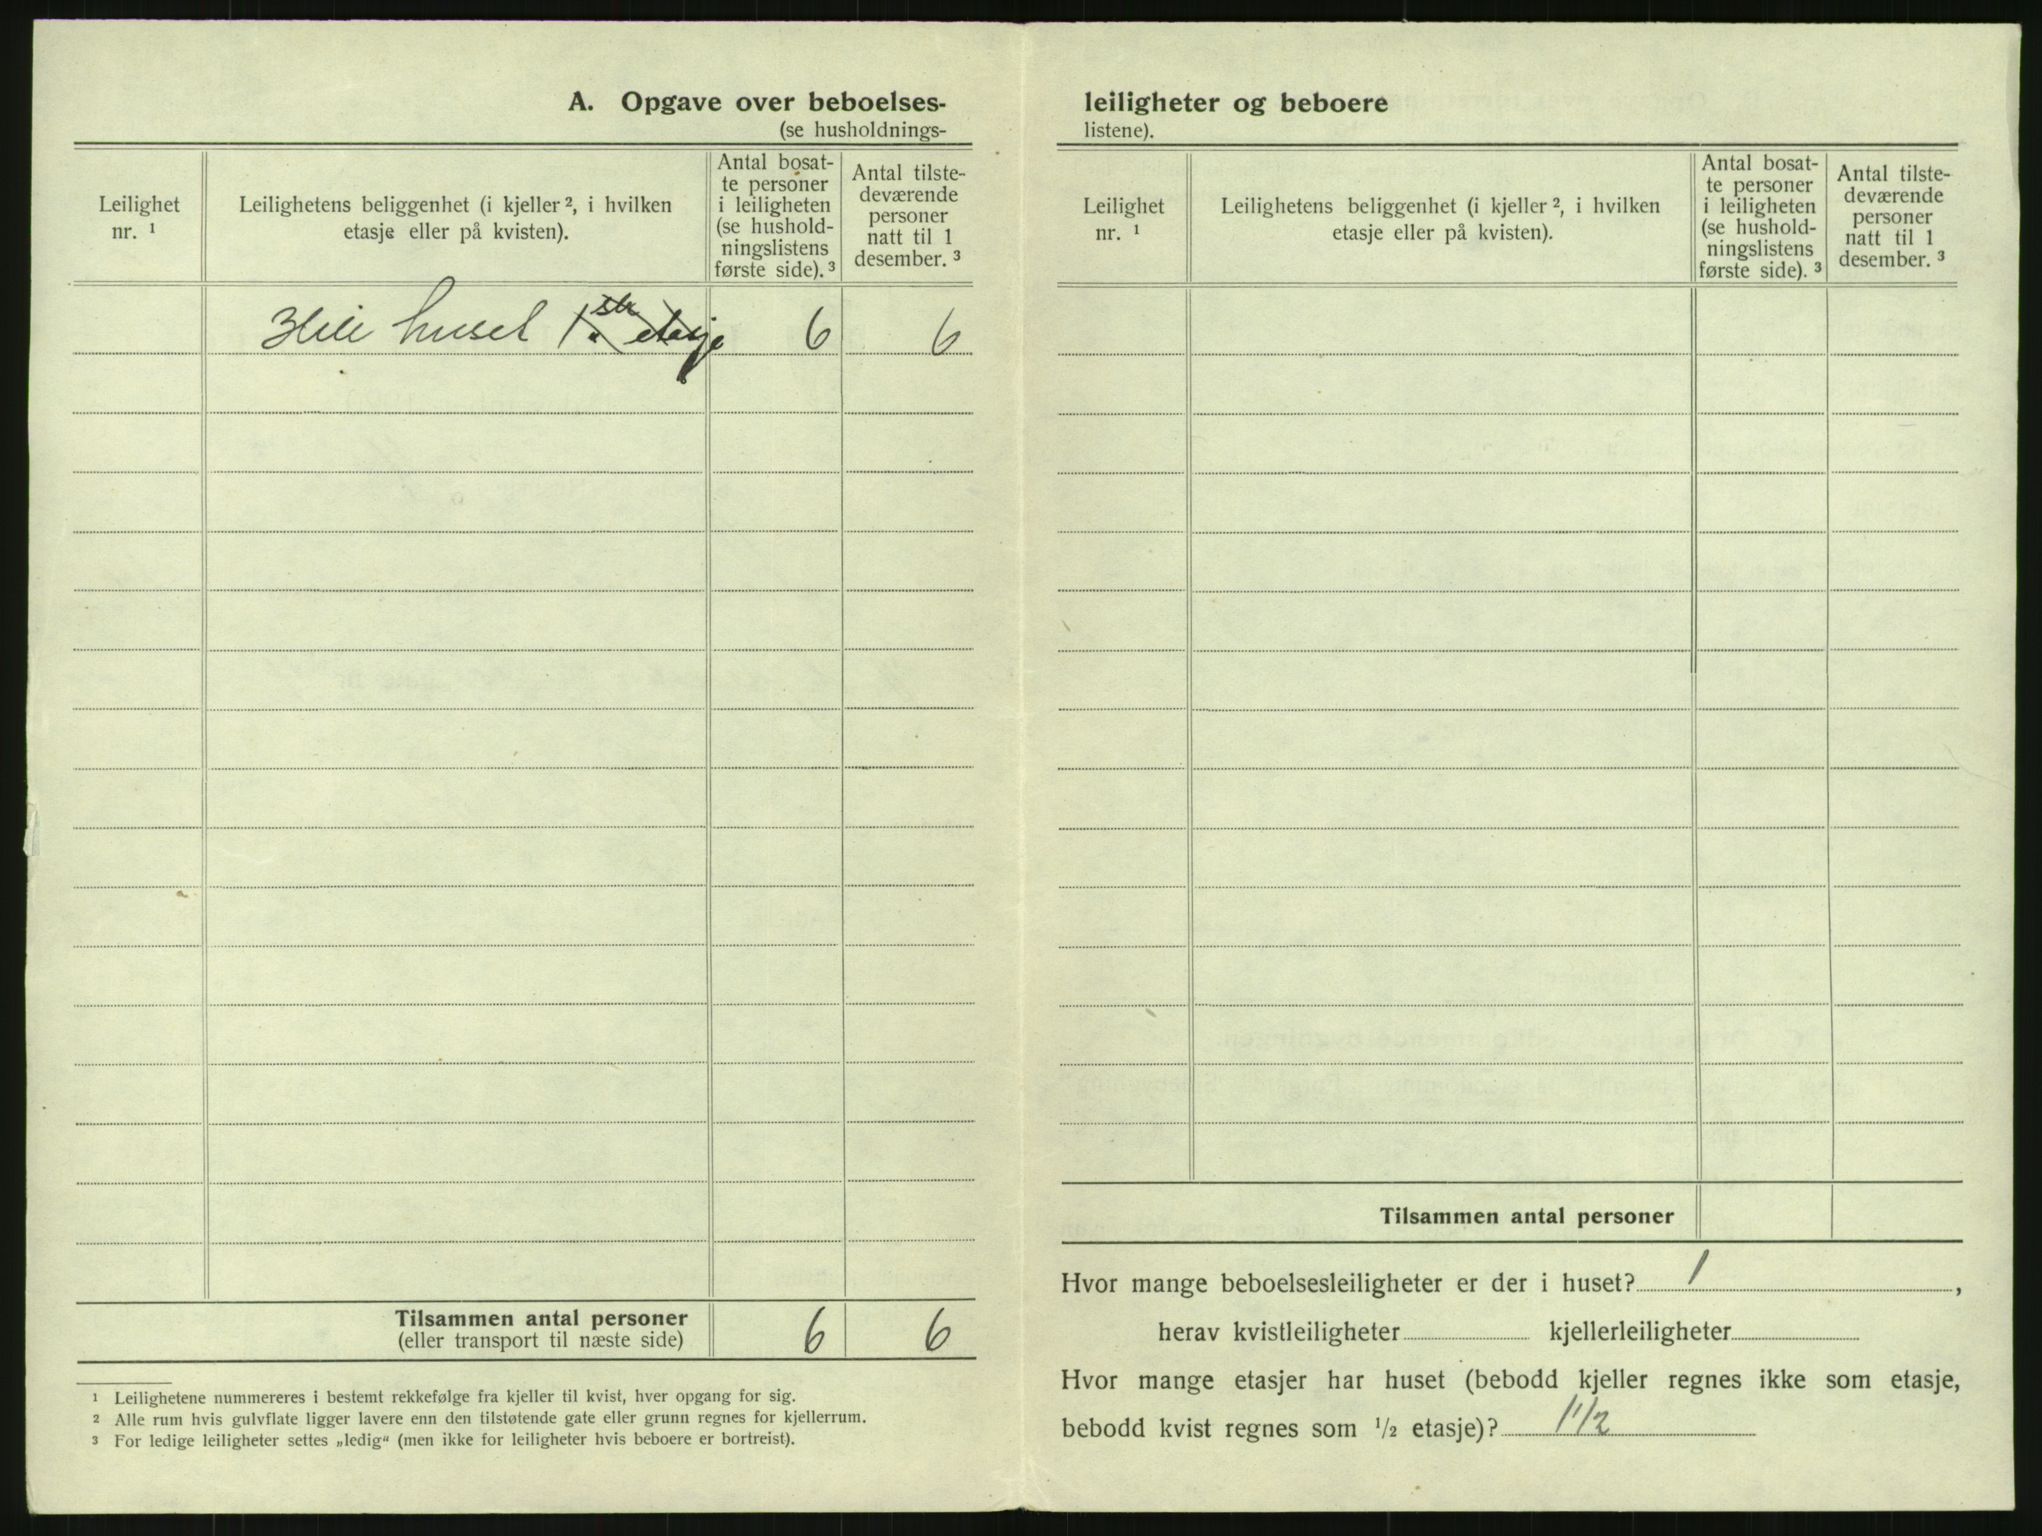 A. Opgave over beboelses-
(se husholdnings-
Leilighet
nr. ¹
Leilighetens beliggenhet (i kjeller ², i hvilken
etasje eller på kvisten).
Antal bosat-
te personer
i leiligheten
(se hushold-
ningslistens
første side). ³
Antal tilste-
deværende
personer
natt til 1
desember. ³
Hele huset 1. ste etasje 6 6
Tilsammen antal personer
(eller transport til næste side) 6 6
¹ Leilighetene nummereres i bestemt rekkefølge fra kjeller til kvist, hver opgang for sig.
² Alle rum hvis gulvflate ligger lavere enn den tilstøtende gate eller grunn regnes for kjellerrum.
³ For ledige leiligheter settes „ledig“ (men ikke for leiligheter hvis beboere er bortreist).
leiligheter og beboere
listene).
Leilighet
nr. ¹
Leilighetens beliggenhet (i kjeller ², i hvilken
etasje eller på kvisten).
Antal bosat-
te personer
i leiligheten
(se hushold-
ningslistens
første side). ³
Antal tilste-
deværende
personer
natt til 1
desember. ³
Tilsammen antal personer
Hvor mange beboelsesleiligheter er der i huset? 1 ,
herav kvistleiligheter kjellerleiligheter
Hvor mange etasjer har huset (bebodd kjeller regnes ikke som etasje,
bebodd kvist regnes som ½ etasje)? 1 1/2